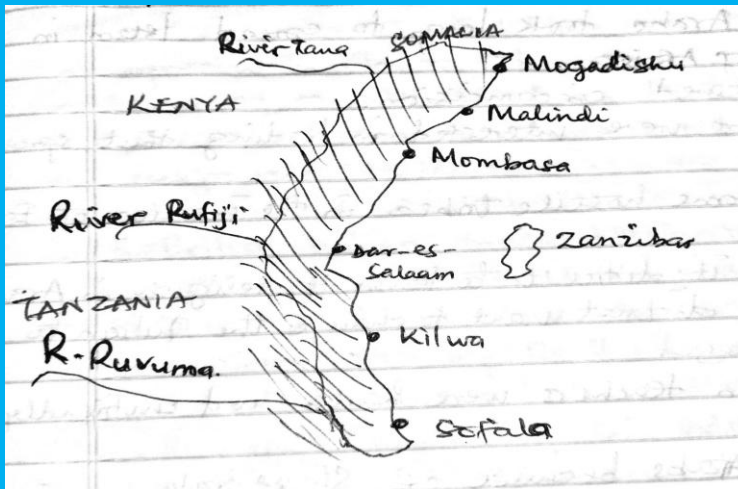 River Tana
SOMALIA
Mogadishu
KENYA
Malindi
Mombasa
River Rufiji
Zanzibar
Dar-es-
Salaam
TANZANIA
Kilwa
R-Ruvuma.
Sofala